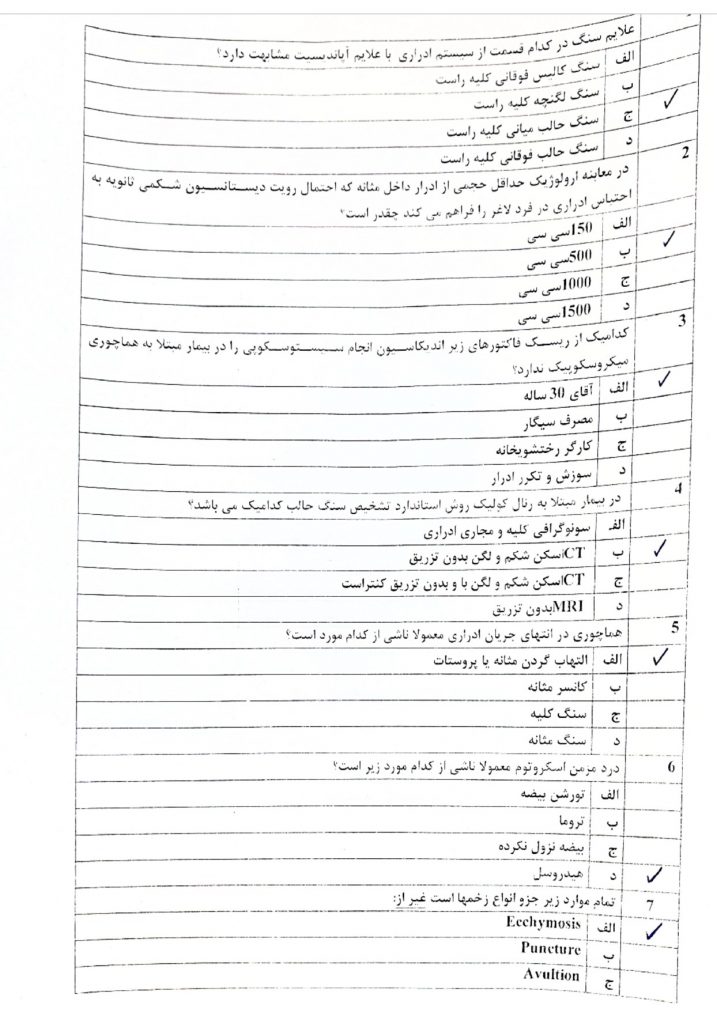 علایم سنگ در کدام قسمت از سیستم ادراری با علایم آپاندیسیت مشابهت دارد؟
الف سنگ کالیس فوقانی کلیه راست
ب سنگ لگنچه کلیه راست
ج سنگ حالب میانی کلیه راست ✓
د سنگ حالب فوقانی کلیه راست
2 در معاینه ارولوژیک حداقل حجمی از ادرار داخل مثانه که احتمال رویت دیستانسیون شکمی ثانویه به
احتباس ادراری در فرد لاغر را فراهم می کند چقدر است؟
الف 150سی سی
ب 500سی سی ✓
ج 1000سی سی
د 1500سی سی
3 کدامیک از ریسک فاکتورهای زیر اندیکاسیون انجام سیستوسکوپی را در بیمار مبتلا به هماچوری
میکروسکوپیک ندارد؟
الف آقای 30 ساله ✓
ب مصرف سیگار
ج کارگر رختشویخانه
د سوزش و تکرر ادرار
4 در بیمار مبتلا به رنال کولیک روش استاندارد تشخیص سنگ حالب کدامیک می باشد؟
الف سونوگرافی کلیه و مجاری ادراری
ب CTاسکن شکم و لگن بدون تزریق ✓
ج CTاسکن شکم و لگن با و بدون تزریق کنتراست
د MRIبدون تزریق
5 هماچوری در انتهای جریان ادراری معمولا ناشی از کدام مورد است؟
الف التهاب گردن مثانه یا پروستات ✓
ب کانسر مثانه
ج سنگ کلیه
د سنگ مثانه
6 درد مزمن اسکروتوم معمولا ناشی از کدام مورد زیر است؟
الف تورشن بیضه
ب تروما
ج بیضه نزول نکرده
د هیدروسل ✓
7 تمام موارد زیر جزو انواع زخمها است غیر از:
الف Ecchymosis ✓
ب Puncture
ج Avultion